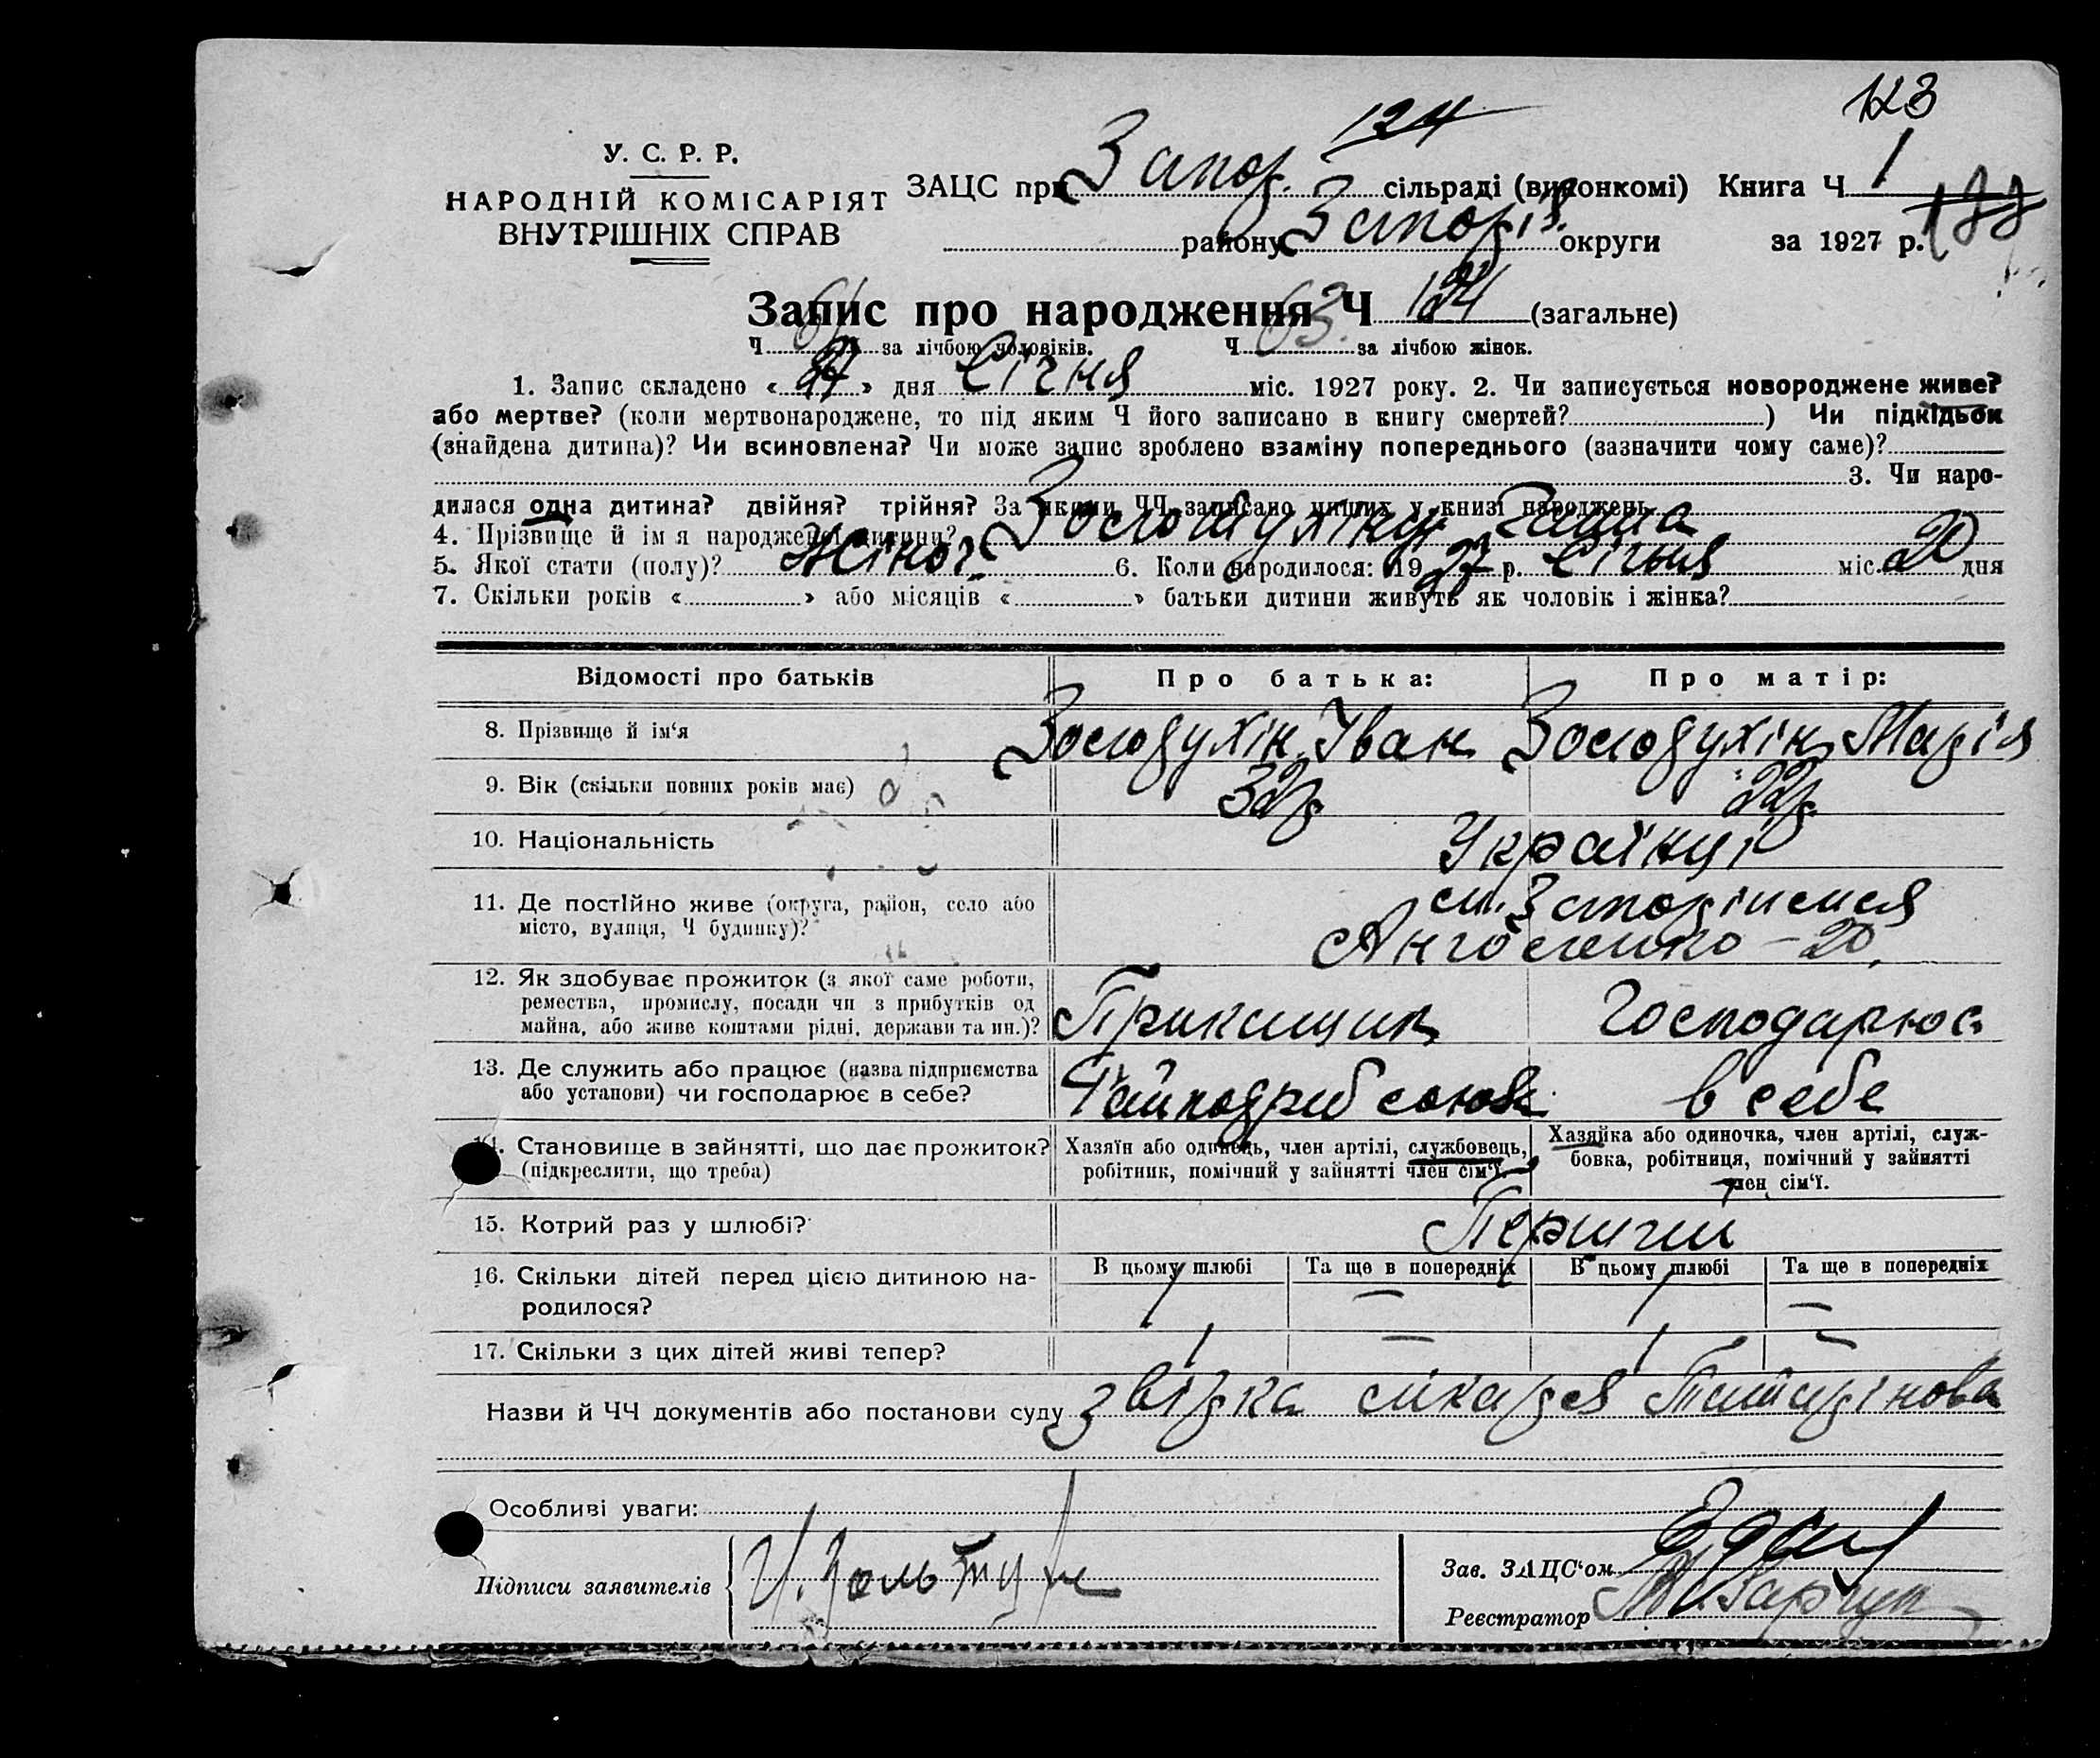 123
124
У. С. Р. Р.
ЗАЦС при Запор. сільраді (виконкомі) Книга Ч 1
НАРОДНІЙ КОМІСАРІЯТ
ВНУТРІШНІХ СПРАВ
району Запоріз. округи за 1927 р.
Запис про народження Ч 124 (загальне)
Ч за лічбою чоловіків. Ч 63. за лічбою жінок.
1. Запис складено « » дня Січня міс. 1927 року. 2. Чи записується новороджене живе?
або мертве? (коли мертвонароджене, то під яким Ч його записано в книгу смертей? ) Чи підкідьок
(знайдена дитина)? Чи всиновлена? Чи може запис зроблено взаміну попереднього (зазначити чому саме)?
3. Чи наро-
дилася одна дитина? двійня? трійня? За якими ЧЧ записано инших у книзі народжень
4. Прізвище й ім я народженої дитини? Ганна
5. Якої стати (полу)? Жіноч. 6. Коли народилося: 1927 р. Січня міс. 20 дня
7. Скільки років « » або місяців « » батьки дитини живуть як чоловік і жінка?
Відомості про батьків Про батька: Про матір:
8. Прізвище й ім'я Золотухін Іван Золотухін Марія
9. Вік (скільки повних років має) 32р 22р.
10. Національність Українці
11. Де постійно живе (округа, район, село або
місто, вулиця, Ч будинку)? м. Запоріжжя
– 20.
12. Як здобуває прожиток (з якої саме роботи,
ремества, промислу, посади чи з прибутків од
майна, або живе коштами рідні, держави та ин.)? Прикащик Господарює
13. Де служить або працює (назва підприємства
або установи) чи господарює в себе? в себе
14. Становище в зайнятті, що дає прожиток?
(підкреслити, що треба)
Хазяїн або одинець, член артілі, службовець,
робітник, помічний у зайнятті член сім'ї.
Хазяйка або одиночка, член артілі, служ-
бовка, робітниця, помічний у зайнятті
член сім'ї.
15. Котрий раз у шлюбі? Перший
16. Скільки дітей перед цією дитиною на-
родилося?
В цьому шлюбі Та ще в попередніх В цьому шлюбі Та ще в попередніх
1 — 1 —
17. Скільки з цих дітей живі тепер? 1 — 1 —
Назви й ЧЧ документів або постанови суду звідка лікаря
Особливі уваги:
Підписи заявителів
Зав. ЗАЦС'ом
Реєстратор